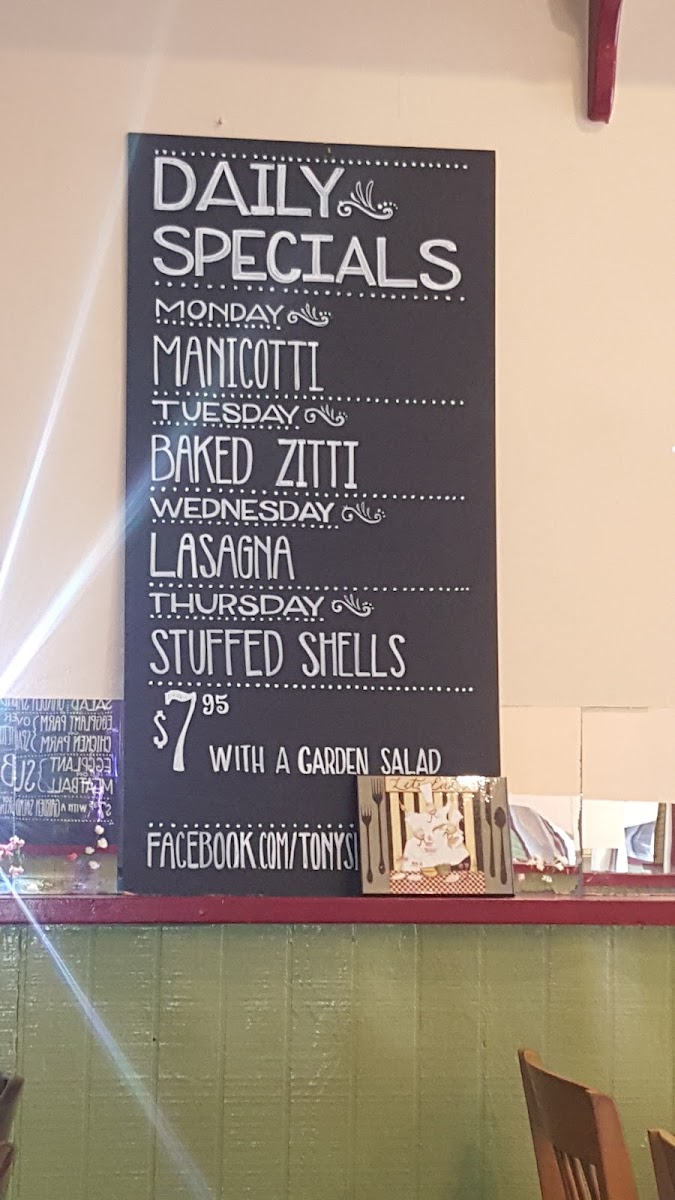 DAILY
SPECIALS
MONDAY
MANICOTTI
TUESDAY
BAKED ZITTI
WEDNESDAY
LASAGNA
THURSDAY
STUFFED SHELLS
$7.95
WITH A GARDEN SALAD
FACEBOOK.COM/TONYS
EGGPLANT PARM
OVER
CHICKEN PARM
EGGPLANT
SUB
MEATBALL
WITH A GARDEN
Let's Eat